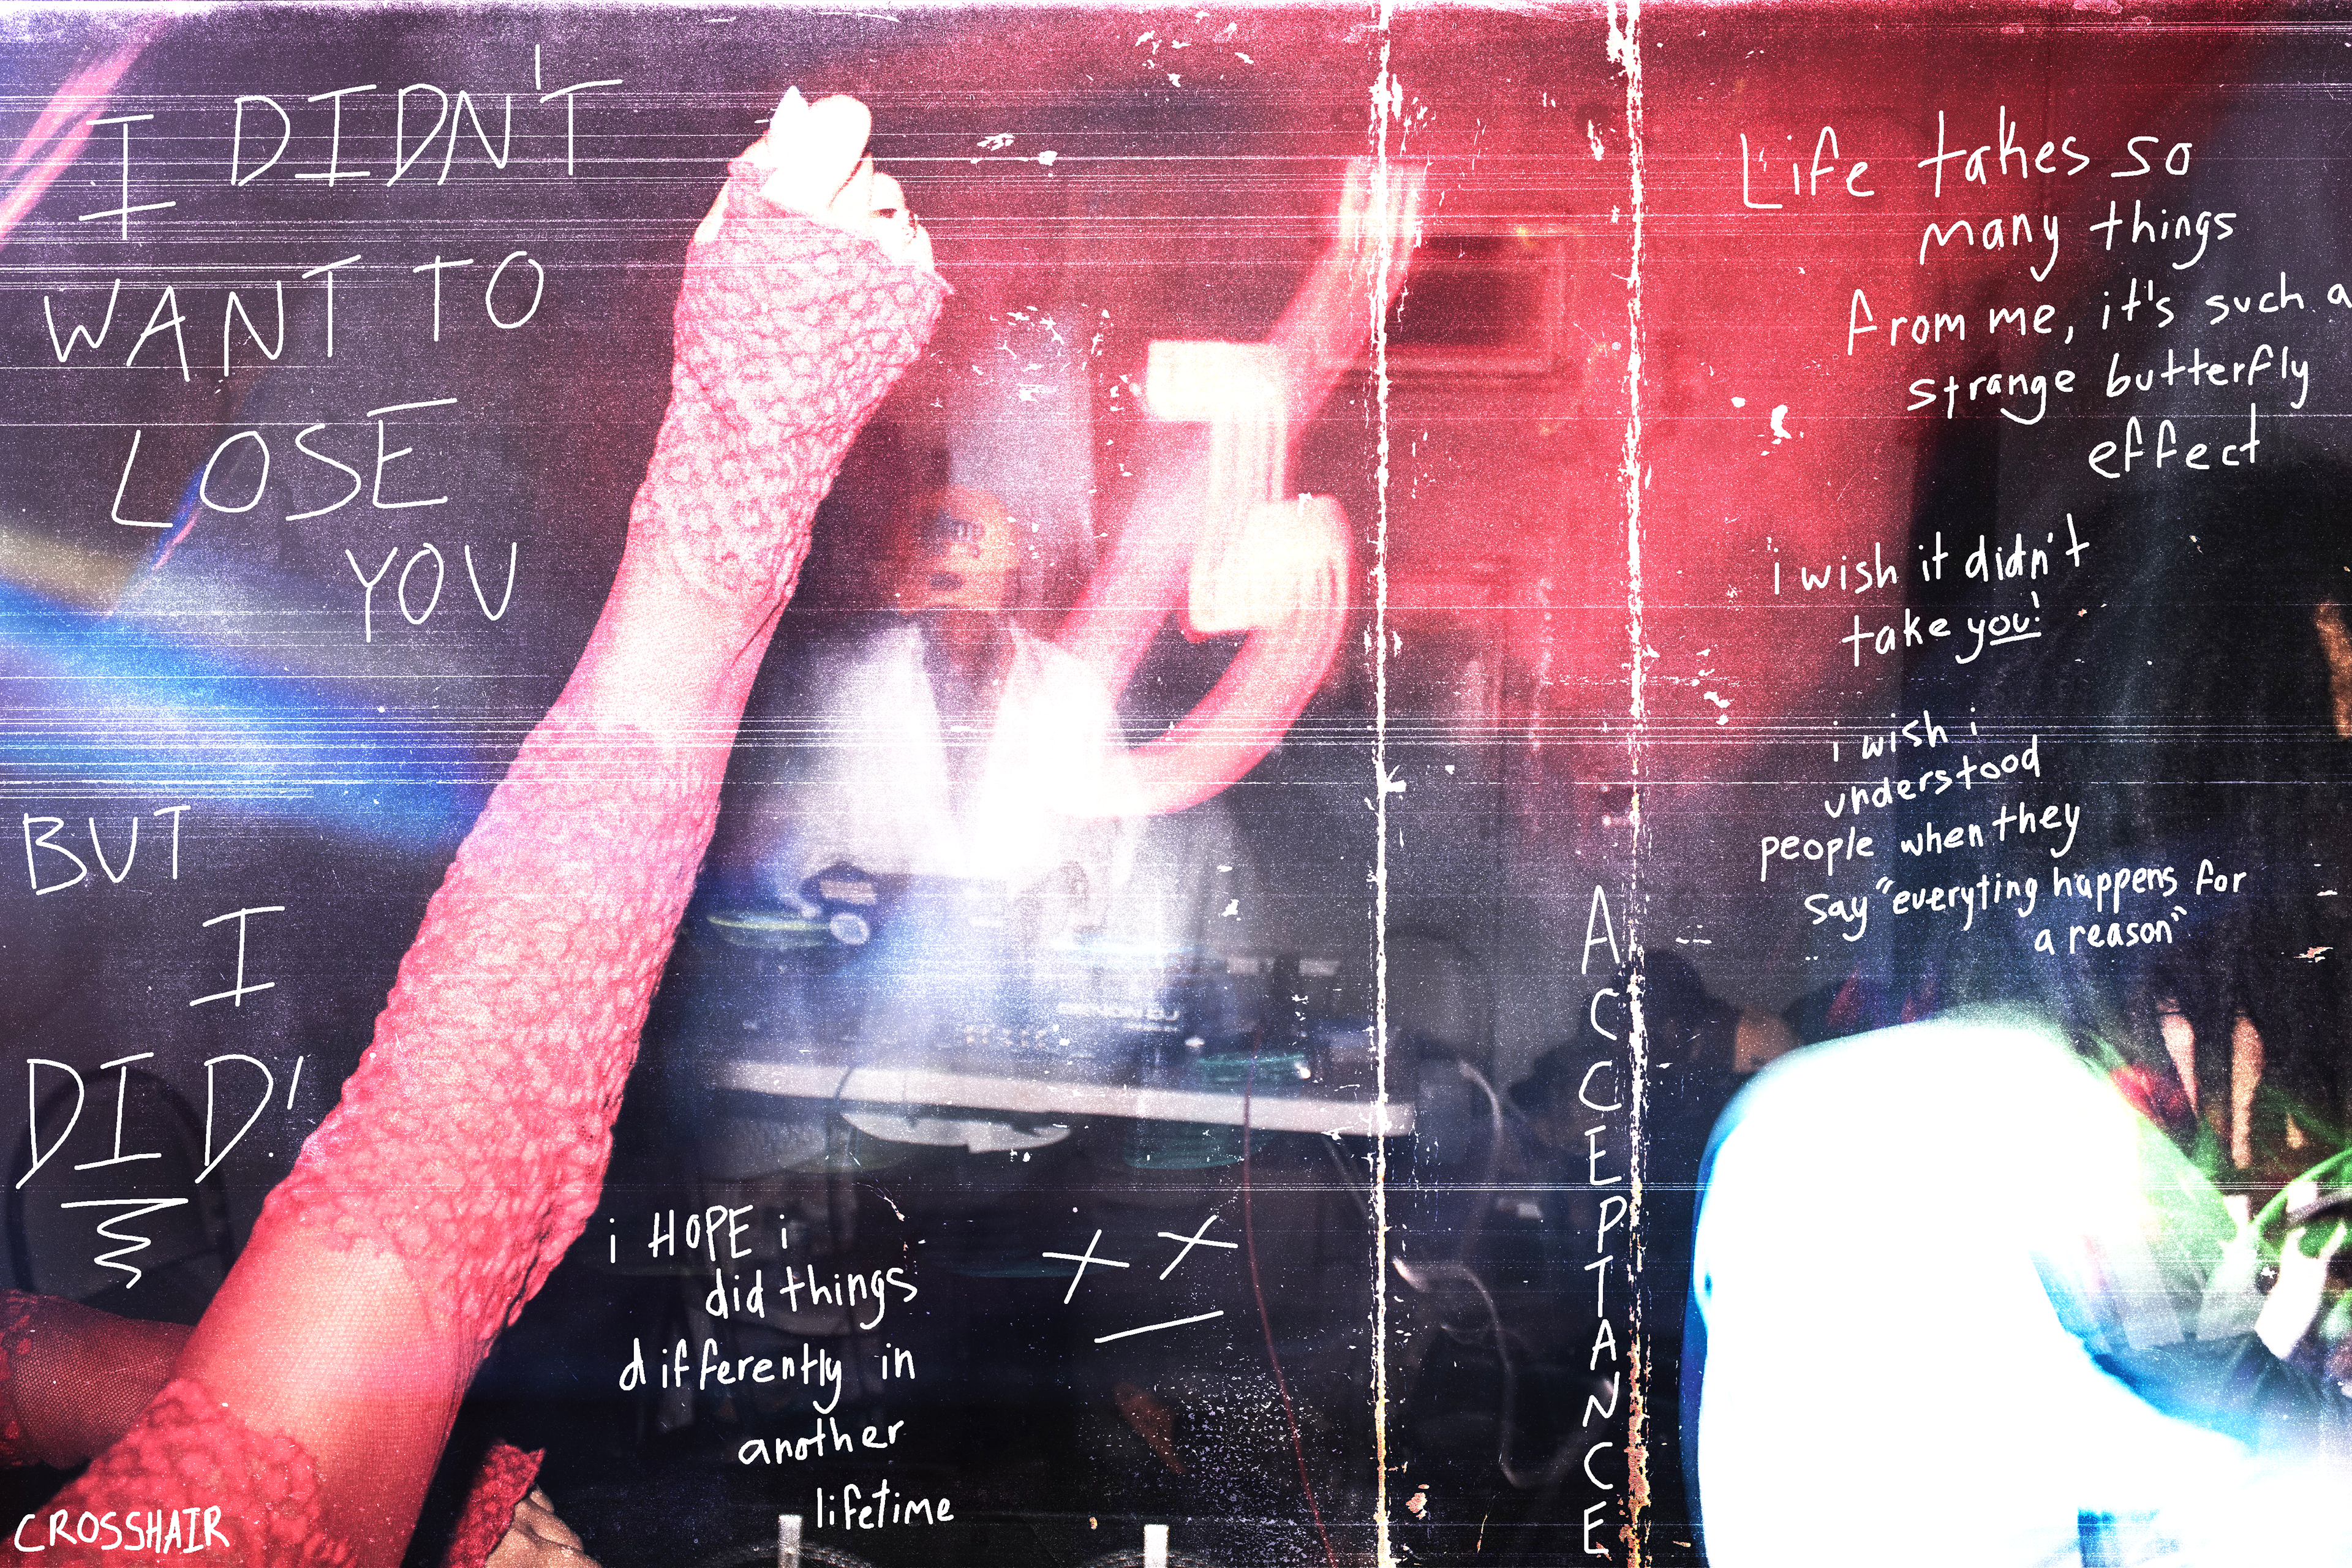 I DIDN'T
WANT TO
LOSE
YOU
BUT
I
DID!
CROSSHAIR
i HOPE i
did things
differently in
another
lifetime
ACCEPTANCE
Life takes so
many things
from me, it's such a
strange butterfly
effect
i wish it didn't
take you!
i wish i
understood
people when they
say "everyting happens for
a reason"